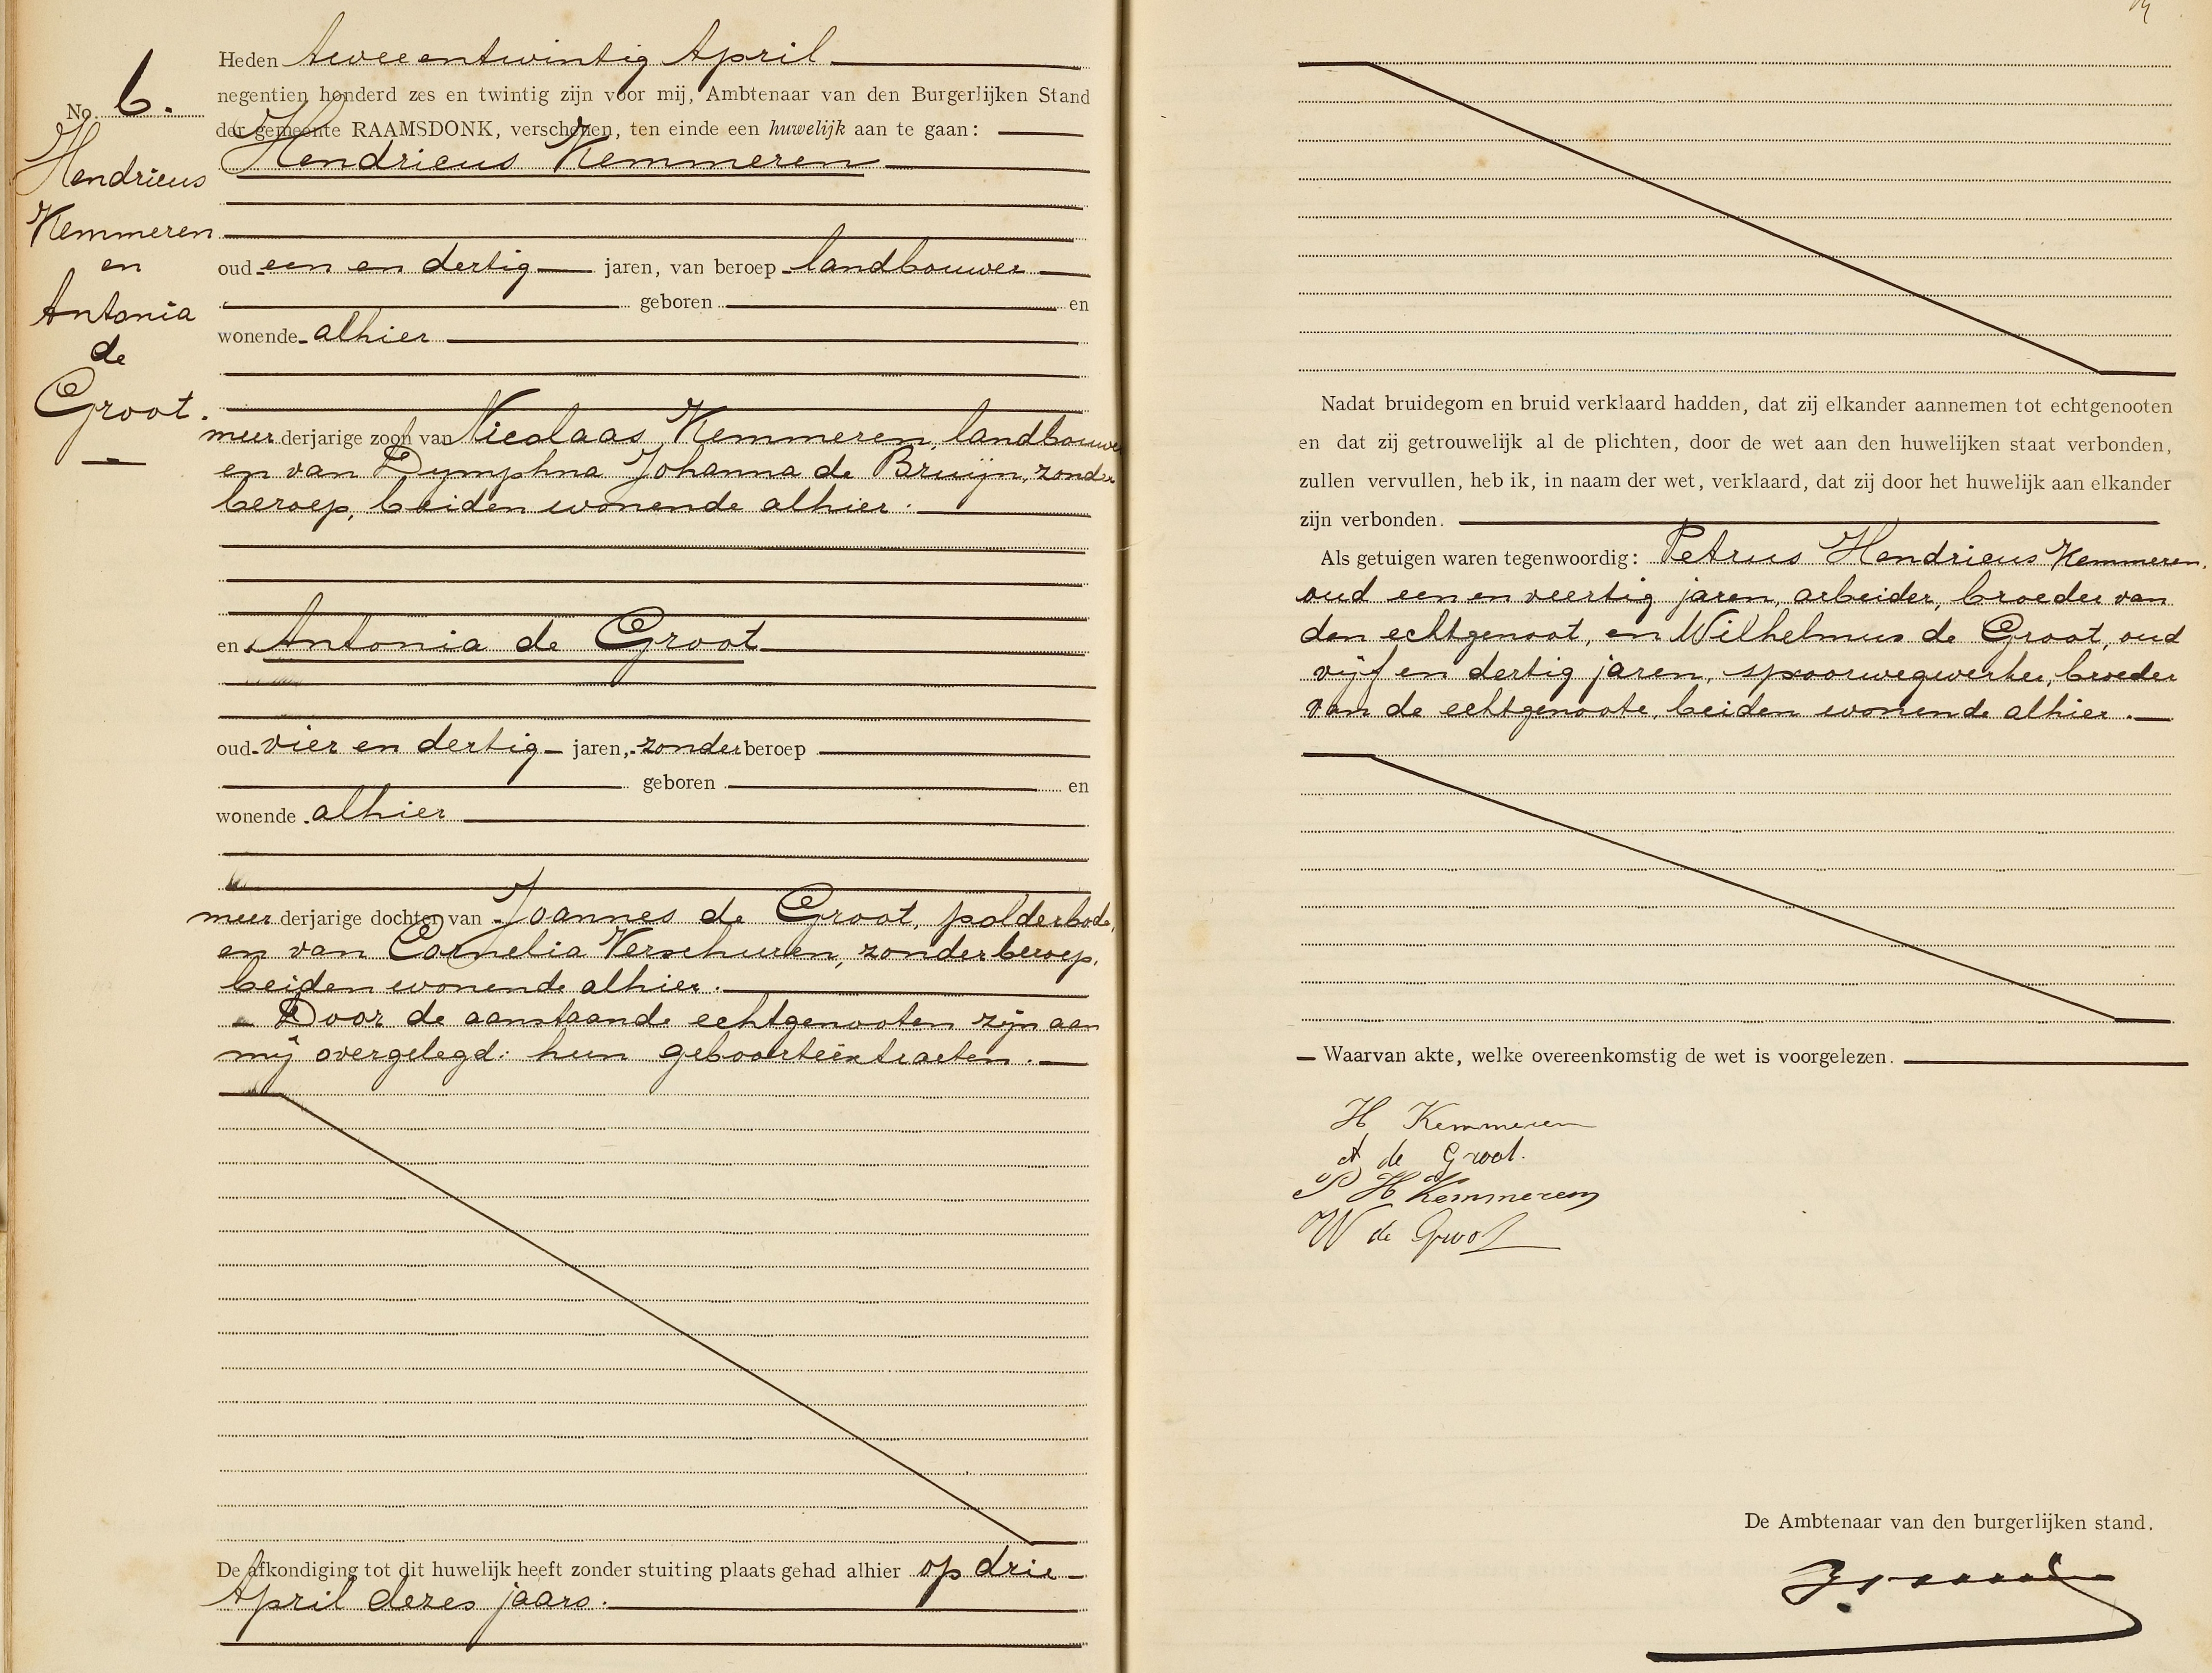 No. 6.
Hendricus
Kemmeren
en
Antonia
de
Groot.
Heden tweeentwintig April
negentien honderd zes en twintig zijn voor mij, Ambtenaar van den Burgerlijken Stand
der gemeente RAAMSDONK, verschenen, ten einde een huwelijk aan te gaan:
Hendricus Kemmeren
oud een en dertig jaren, van beroep landbouwer
geboren en
wonende alhier
meerderjarige zoon van Nicolaas Kemmeren, landbouwer
en van Dymphna Johanna de Bruijn, zonder
beroep, beiden wonende alhier.
en Antonia de Groot
oud vier en dertig jaren, zonder beroep
geboren en
wonende alhier
meerderjarige dochter van Joannes de Groot, polderbode,
en van Cornelia Verschuren, zonder beroep,
beiden wonende alhier.
Door de aanstaande echtgenooten zijn aan
mij overgelegd: hun geboorteëxtracten.
De afkondiging tot dit huwelijk heeft zonder stuiting plaats gehad alhier op drie
April dezes jaars.
Nadat bruidegom en bruid verklaard hadden, dat zij elkander aannemen tot echtgenooten
en dat zij getrouwelijk al de plichten, door de wet aan den huwelijken staat verbonden,
zullen vervullen, heb ik, in naam der wet, verklaard, dat zij door het huwelijk aan elkander
zijn verbonden.
Als getuigen waren tegenwoordig: Petrus Hendricus Kemmeren,
oud een en veertig jaren, arbeider, broeder van
den echtgenoot, en Wilhelmus de Groot, oud
vijf en dertig jaren, spoorwegwerker, broeder
van de echtgenoote, beiden wonende alhier.
Waarvan akte, welke overeenkomstig de wet is voorgelezen.
H Kemmeren
A de Groot.
P H Kemmeren
W de Groot
De Ambtenaar van den burgerlijken stand.